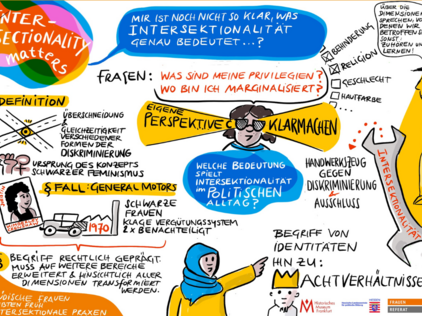 INTER-
SECTIONALITY
matters
MIR IST NOCH NICHT SO KLAR, WAS
INTERSEKTIONALITÄT
GENAU BEDEUTET...?
ÜBER DIE
DIMENSIONEN
SPRECHEN, VON
DENEN WIR
BETROFFEN
SONST:
ZUHÖREN UND
LERNEN!
FRAGEN: WAS SIND MEINE PRIVILEGIEN?
WO BIN ICH MARGINALISIERT?
BEHINDERUNG
RELIGION
GESCHLECHT
HAUTFARBE
...
DEFINITION
ÜBERSCHNEIDUNG
&
GLEICHZEITIGKEIT
VERSCHIEDENER
FORMEN DER
DISKRIMINIERUNG
URSPRUNG DES KONZEPTS
SCHWARZER FEMINISMUS
EIGENE
PERSPEKTIVE KLARMACHEN
WELCHE BEDEUTUNG
SPIELT
INTERSEKTIONALITÄT
IM POLITISCHEN
ALLTAG?
HANDWERKSZEUG
GEGEN
DISKRIMINIERUNG
AUSSCHLUSS
INTERSEKTIONALITÄT
§ FALL: GENERAL MOTORS
1970
SCHWARZE
FRAUEN
KLAGE VERGÜTUNGSSYSTEM
2x BENACHTEILIGT
BEGRIFF RECHTLICH GEPRÄGT.
MUSS AUF WEITERE BEREICHE
ERWEITERT & HINSICHTLICH ALLER
DIMENSIONEN TRANSFORMIERT
WERDEN.
BEGRIFF VON
IDENTITÄTEN
HIN ZU:
ACHTVERHÄLTNISSE
DISCHE FRAUEN
TEN FRÜH
ERSEKTIONALE PRAXEN
Historisches
Museum
Frankfurt
FRAUEN
REFERAT